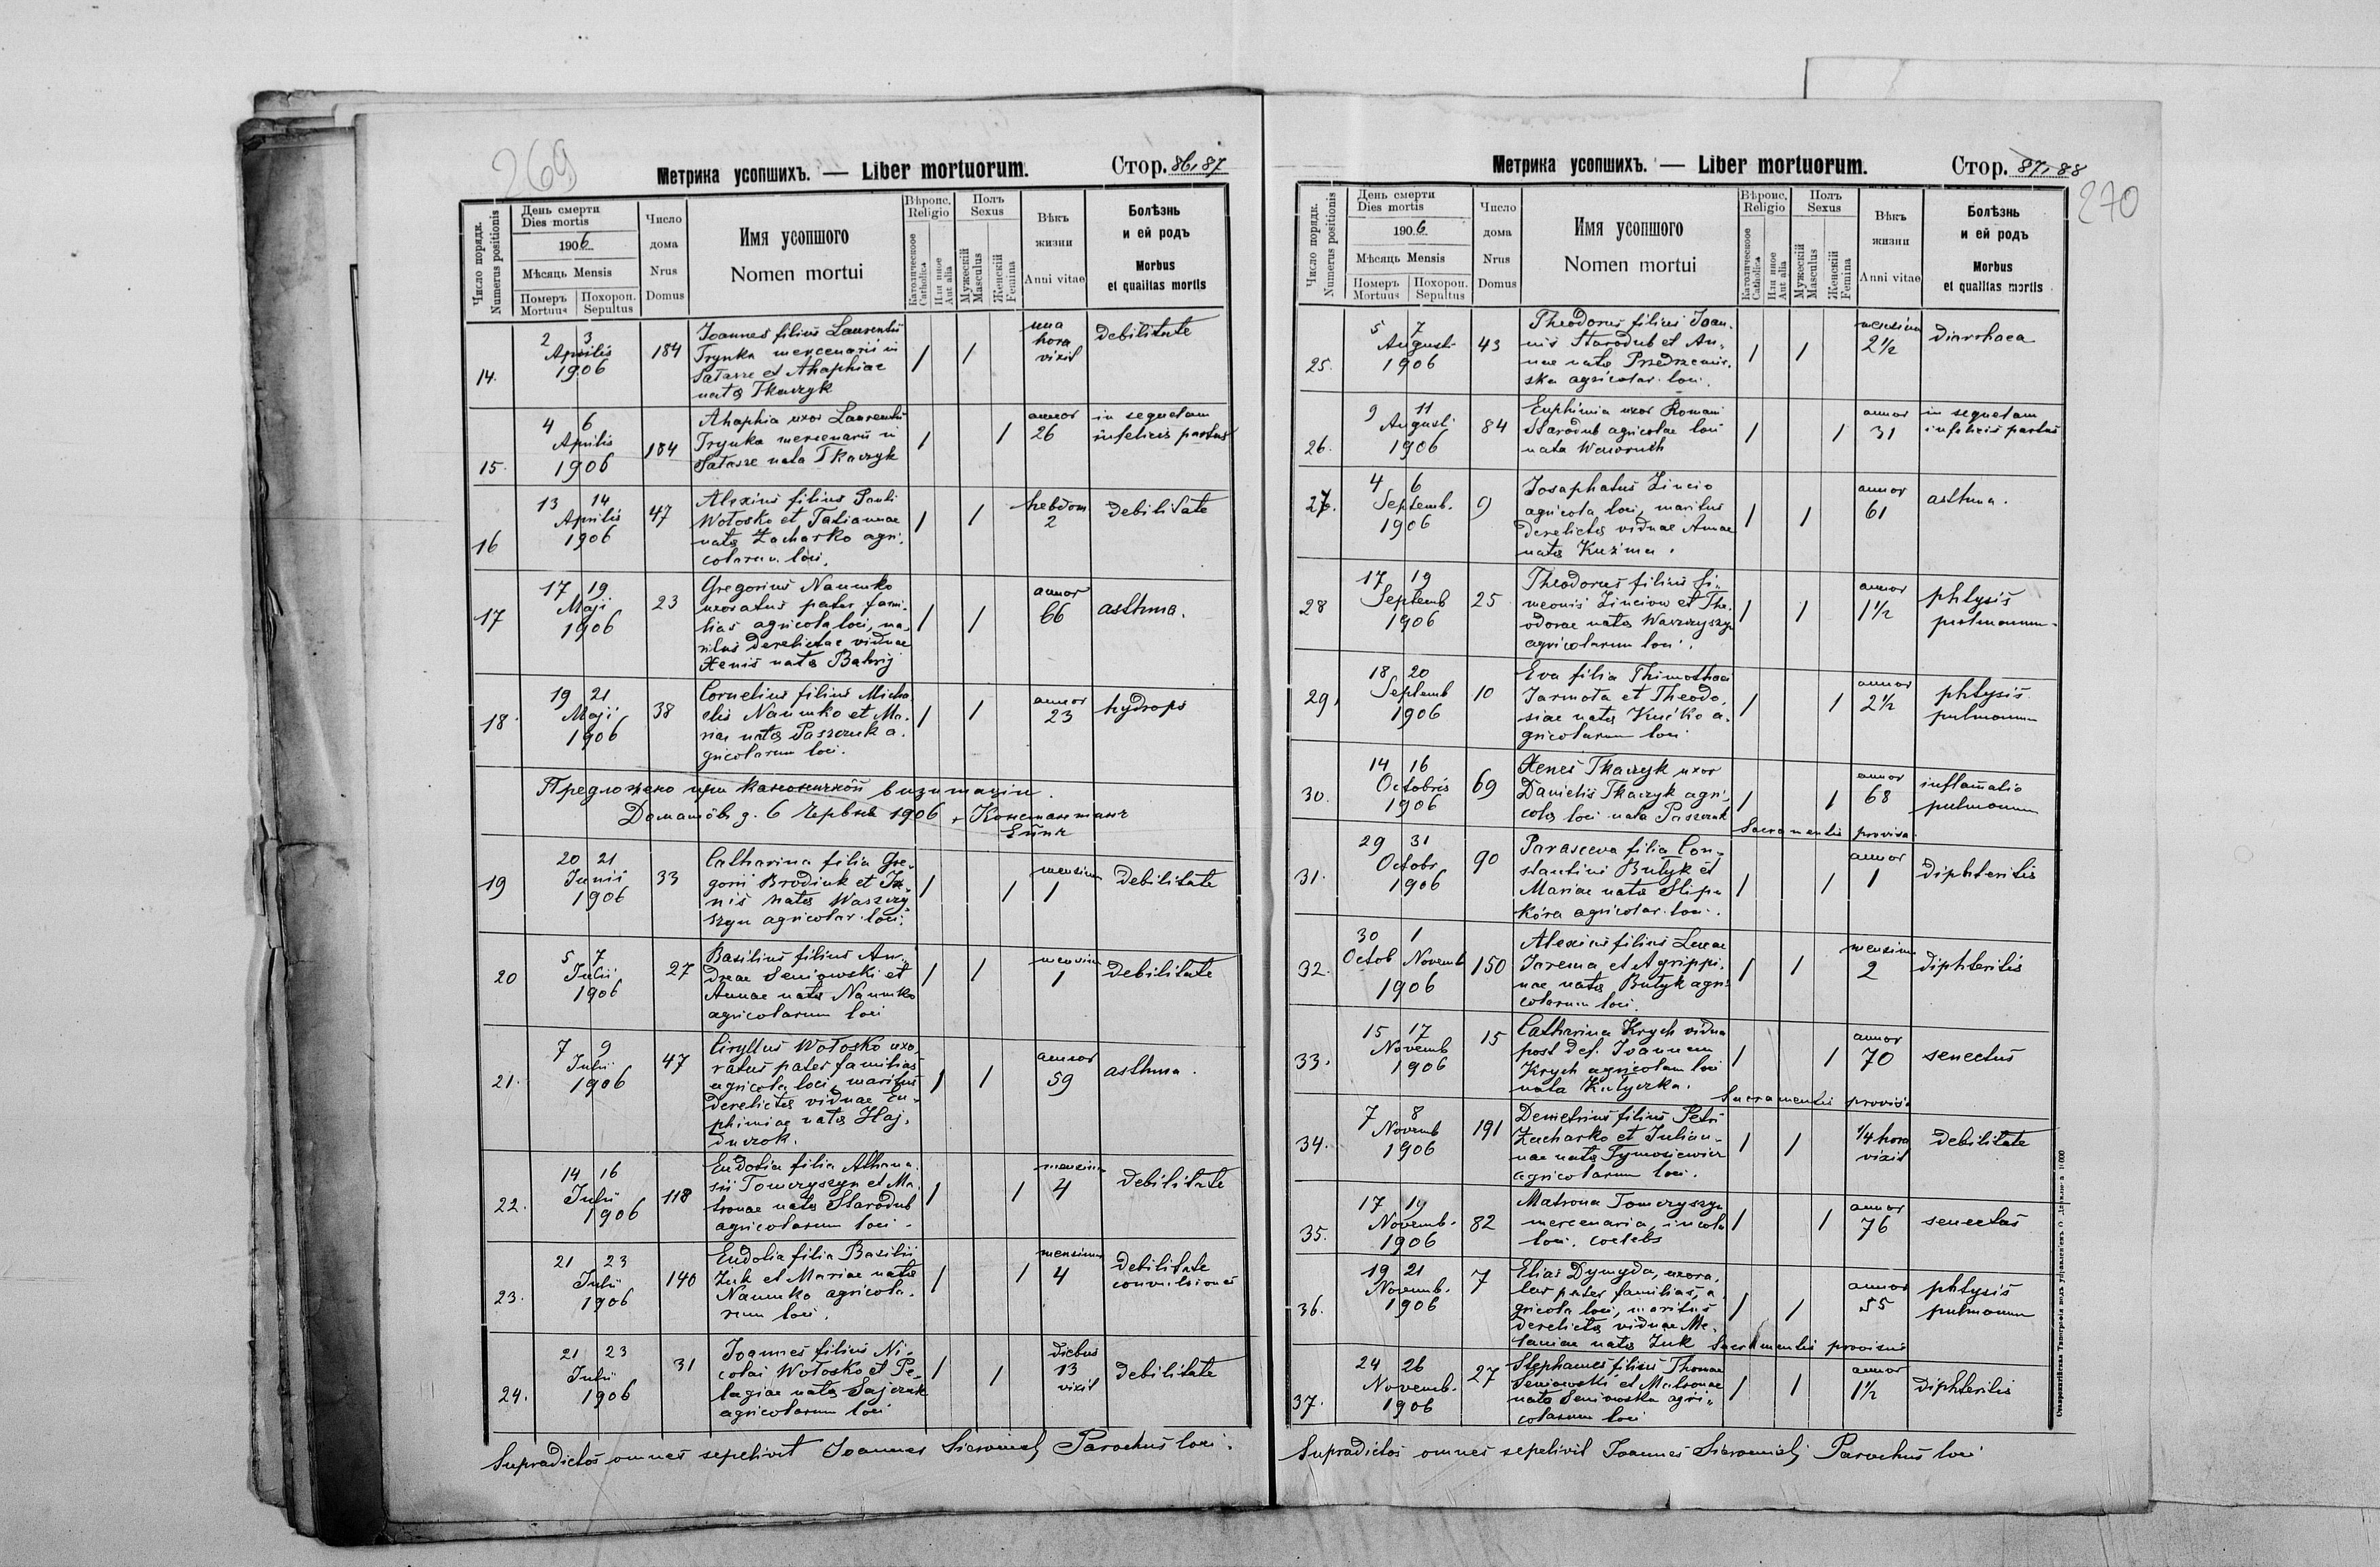 269
Метрика усопшихъ. — Liber mortuorum.
Стор. 86, 87
Число порядк.
Numerus positionis
День смерти
Dies mortis
1906
Мѣсяць Mensis
Померъ
Mortuus
Похорон.
Sepultus
Число
дома
Nrus
Domus
Имя усопшого
Nomen mortui
Вѣроис.
Religio
Католическоое
Catholica
Или иное
Aut alia
Полъ
Sexus
Мужескій
Masculus
Женскій
Femina
Вѣкъ
жизни
Anni vitae
Болѣзнь
и ей родъ
Morbus
et qualitas mortis
14.
2 3
Aprilis
1906
184
Joannes filius Laurentii
Trynka mercenarii in
Satasze et Ahaphiae
nata Tkaczyk
/ /
una
hora
vixit
debilitate
15.
4 6
Aprilis
1906
184
Ahaphia uxor Laurentii
Trynka mercenarii in
Satasze nata Tkaczyk
/ /
annor
26
in sequelam
infelicis partus
16
13 14
Aprilis
1906
47
Alexius filius Pauli
Wołosko et Tatiannae
nata Zacharko agri-
colarum loci.
/ /
hebdom
2
debilitate
17
17 19
Maji
1906
23
Gregorius Naumko
uxoratus pater fami-
lias agricola loci, ma-
ritus derelictae viduae
Xenis nata Bahrij
/ /
annor
66
asthma.
18.
19 21
Maji
1906
38
Cornelius filius Micha
elis Naumko et Ma-
riae nata Paszczuk a-
gricolarum loci.
/ /
annor
23
hydrops
Предложено при каноничной визитаціи.
Домашôвъ д. 6 Червня 1906 + Константинъ
Епппъ
19
20 21
Junii
1906
33
Catharina filia Gre-
gorii Brodiuk et Xe-
nis nata Waszczy
szyn agricolar. loci.
/ /
mensium
1
debilitate
20
5 7
Julii
1906
27
Basilius filius An-
dreae Seniowski et
Annae nata Naumko
agricolarum loci
/ /
mensium
1
debilitate
21.
7 9
Julii
1906
47
Ciryllus Wołosko uxo-
ratus pater familias
agricola loci, maritus
derelicta viduae Eu-
phimiae nata Haj-
duczok.
/ /
annor
59
asthma.
22.
14 16
Julii
1906
118
Eudotia filia Athana-
sii Tomczyszyn et Ma-
tronae nata Starodub
agricolarum loci.
/ /
mensium
4
debilitate
23.
21 23
Julii
1906
140
Eudotia filia Basilii
Zuk et Mariae nata
Naumko agricola-
rum loci.
/ /
mensium
4
debilitate
convulsiones
24.
21 23
Julii
1906
31
Joannes filius Ni-
colai Wołosko et Pe-
lagiae nata Sajczuk
agricolarum loci
/ /
diebus
13
vixit
debilitate
Supradictos omnes sepelivit Joannes Parochus loci.
270
Метрика усопшихъ. — Liber mortuorum.
Стор. 87, 88
Число порядк.
Numerus positionis
День смерти
Dies mortis
1906
Мѣсяць Mensis
Померъ
Mortuus
Похорон.
Sepultus
Число
дома
Nrus
Domus
Имя усопшого
Nomen mortui
Вѣроис.
Religio
Католическоое
Catholica
Или иное
Aut alia
Полъ
Sexus
Мужескій
Masculus
Женскій
Femina
Вѣкъ
жизни
Anni vitae
Болѣзнь
и ей родъ
Morbus
et qualitas mortis
25.
5 7
Augusti
1906
43
Theodorus filius Joan-
nis Starodub et An-
nae nata
ska agricolar. loci.
/ /
mensium
2½
diarrhaea
26.
9 11
Augusti
1906
84
Euphimia uxor Romani
Starodub agricolae loci
nata
/ /
annor
31
in sequelam
infelicis partus
27.
4 6
Septemb.
1906
9
Josaphatus Zincio
agricola loci, maritus
derelicta viduae Annae
nata Kuzma.
/ /
annor
61
asthma.
28
17 19
Septemb
1906
25
Theodorus filius Si-
meonis Zinciow et The-
odorae nata Waszczyszyn
agricolarum loci.
/ /
annor
1½
phtysis
pulmonum
29.
18 20
Septemb
1906
10
Eva filia Thimothaei
Jarmoła et Theodo-
siae nata Kućko a-
gricolarum loci
/ /
annor
2½
phtysis
pulmonum
30.
14 16
Octobris
1906
69
Xenes Tkaczyk uxor
Danielis Tkaczyk agri-
cola loci nata Paszczuk
Sacramentis provisa
/ /
annor
68
inflamatio
pulmonum
31.
29 31
Octobr.
1906
90
Parasceva filia Con-
stantini Butyk et
Mariae nata Slipe
kóra agricolar. loci.
/ /
annor
1
diphteritis
32.
30 1
Octob Novemb
1906
150
Alexius filius Lucae
Jarema et Agrippi-
nae nata Butyk agri-
colarum loci.
/ /
mensium
2
diphteritis
33.
15 17
Novemb
1906
15
Catharina Krych vidua
post def. Joannem
Krych agricolam loci
nata Kulyczka.
Sacramentis provisa
/ /
annor
70
senectus
34.
7 8
Novemb
1906
191
Demetrius filius Petri
Zacharko et Julian-
nae nata Tymosiewicz
agricolarum loci.
/ /
¼ hora
vixit
debilitate
35.
17 19
Novemb.
1906
82
Matrona Tomczyszyn
mercenaria, incola
loci. coelebs
/ /
annor
76
senectus
36.
19 21
Novemb.
1906
7
Elias Dymyda, uxora-
tus pater familias a-
gricola loci, maritus
derelicta viduae Me-
laniae nata Zuk Sacramentis provisus
/ /
annor
55
phtysis
pulmonum
37.
24 26
Novemb.
1906
27
Stephanus filius Thomae
Seniowski et Matronae
nata Seniowska agri-
colarum loci
/ /
annor
1½
diphteritis
Supradictos omnes sepelivit Joannes Parochus loci